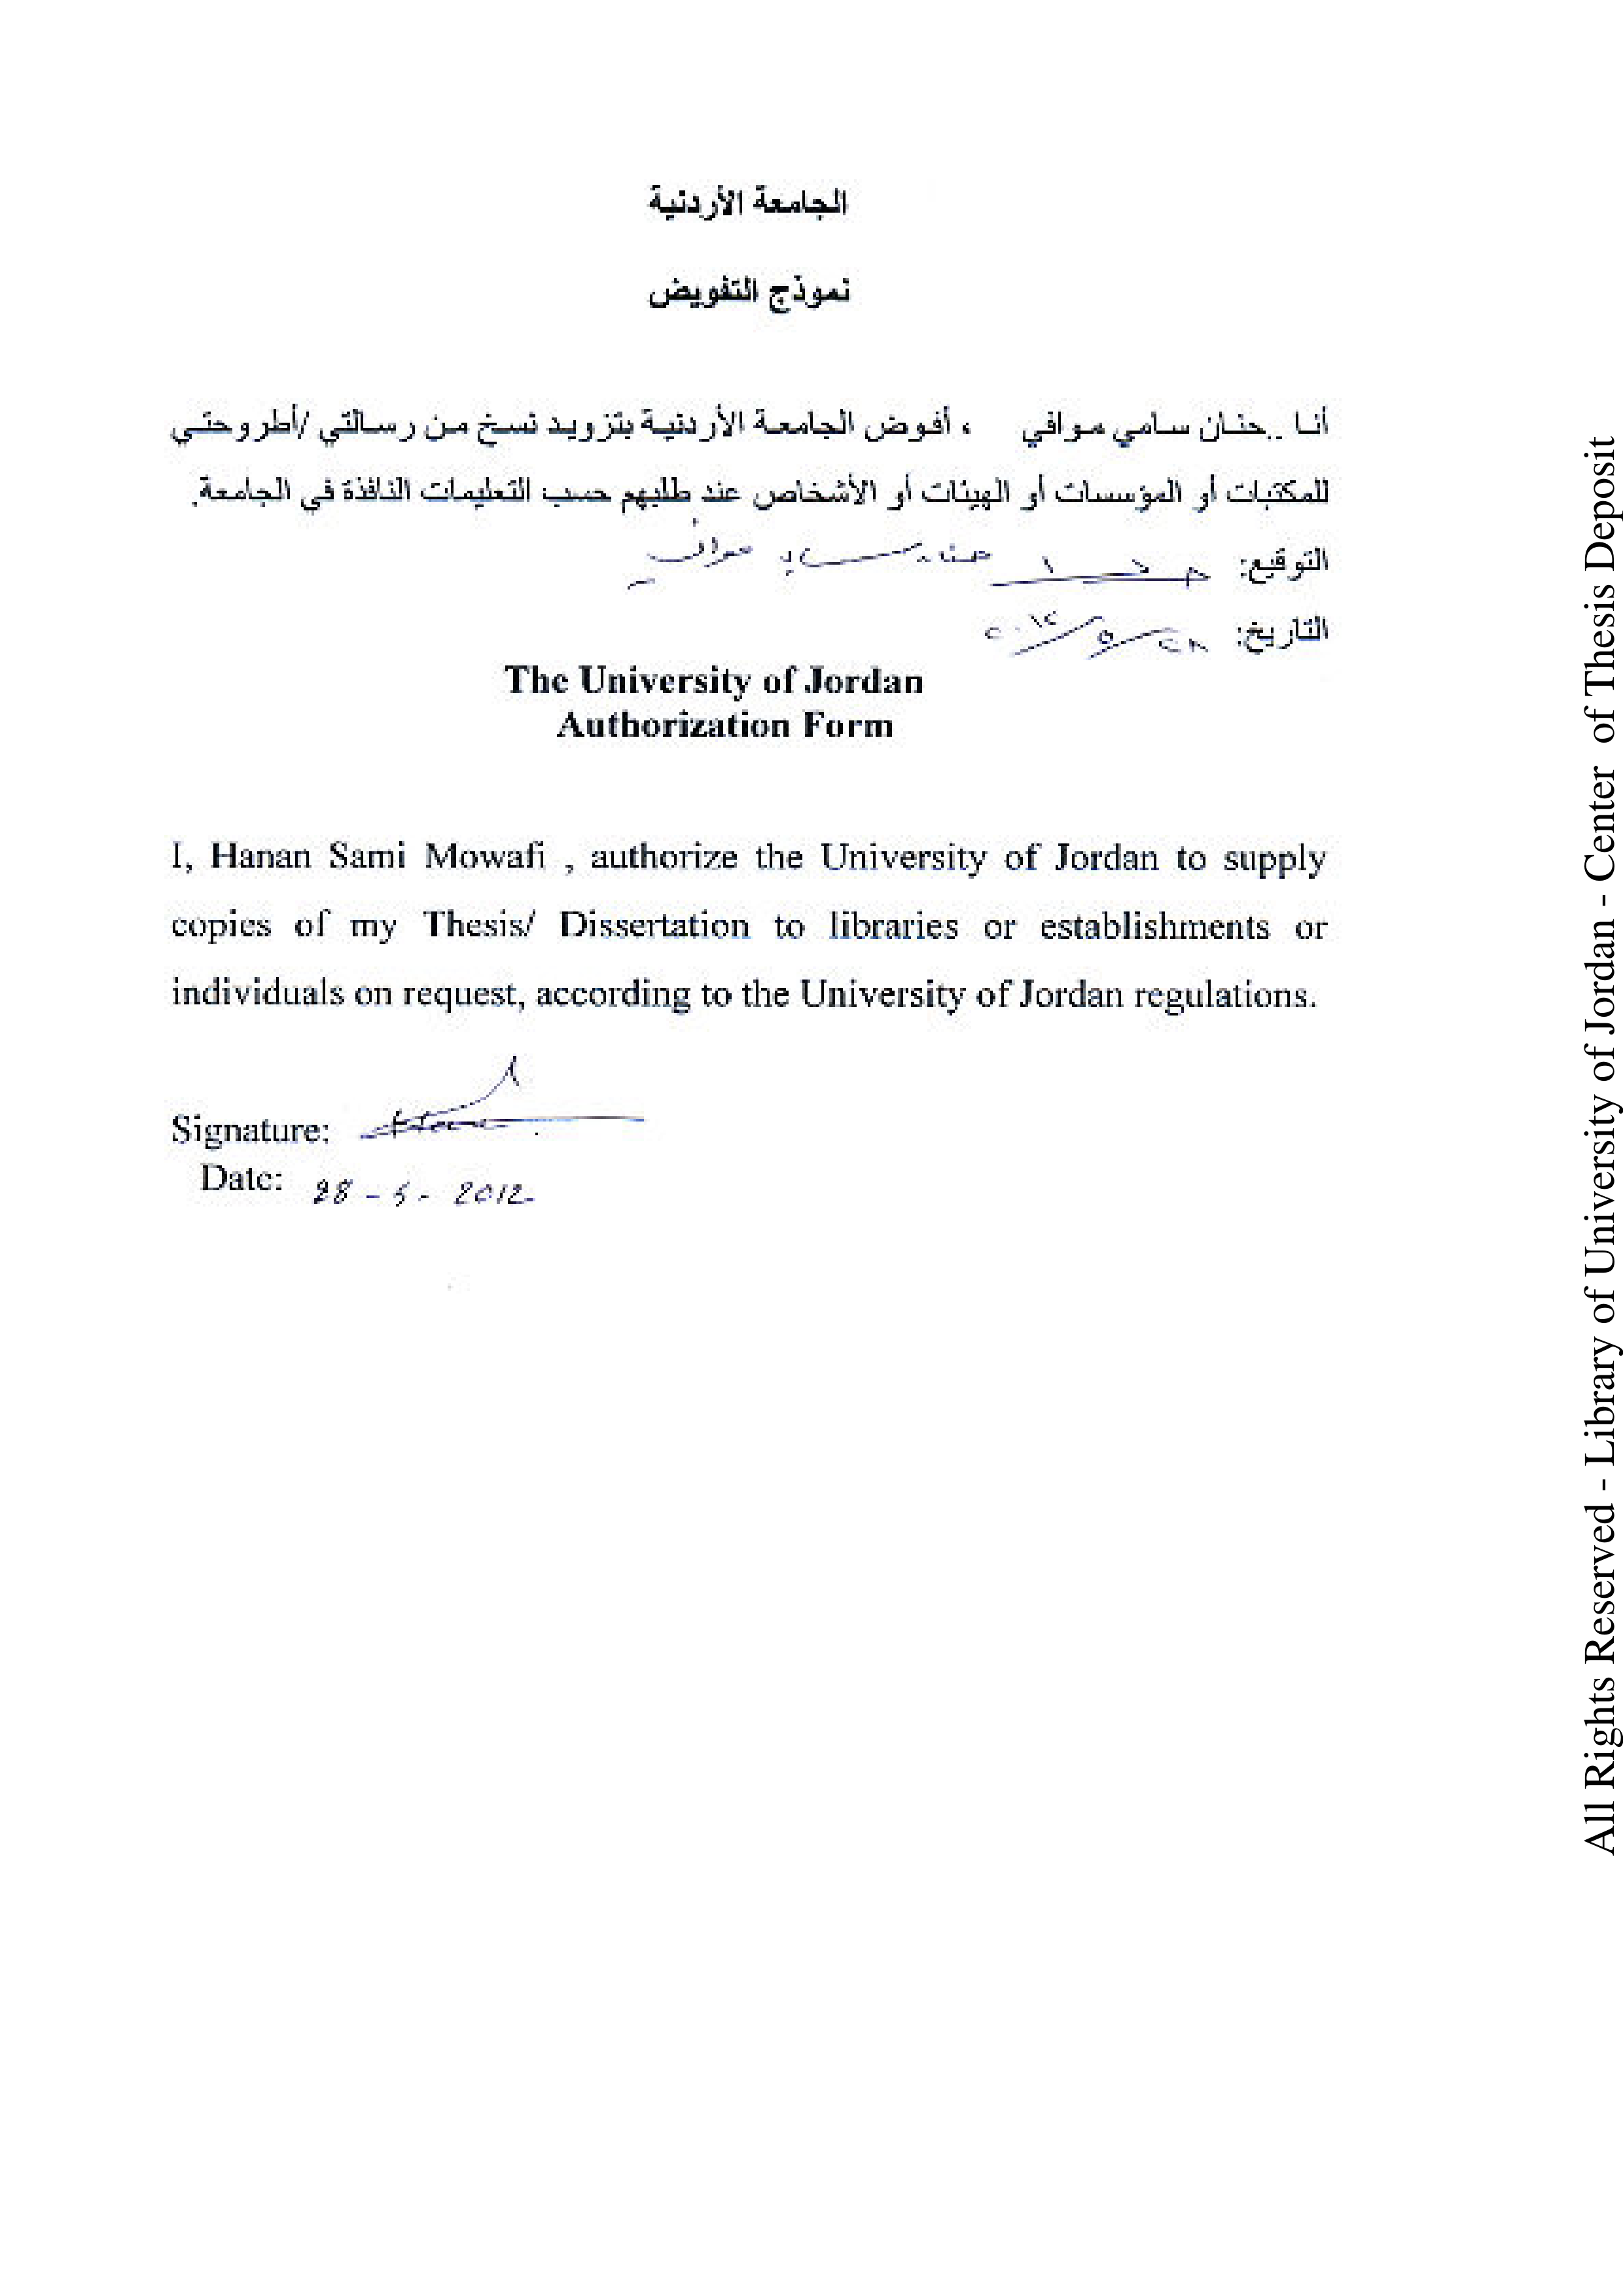 الجامعة الأردنية
نموذج التفويض
أنا ..حنان سامي موافي ، أفوض الجامعة الأردنية بتزويد نسخ من رسالتي /أطروحتي
للمكتبات أو المؤسسات أو الهيئات أو الأشخاص عند طلبهم حسب التعليمات النافذة في الجامعة.
التوقيع: حنان سامي موافي
التاريخ: ٢٨/٥/٢٠١٢
The University of Jordan
Authorization Form
I, Hanan Sami Mowafi , authorize the University of Jordan to supply
copies of my Thesis/ Dissertation to libraries or establishments or
individuals on request, according to the University of Jordan regulations.
Signature:
Date: 28 - 5 - 2012
All Rights Reserved - Library of University of Jordan - Center of Thesis Deposit